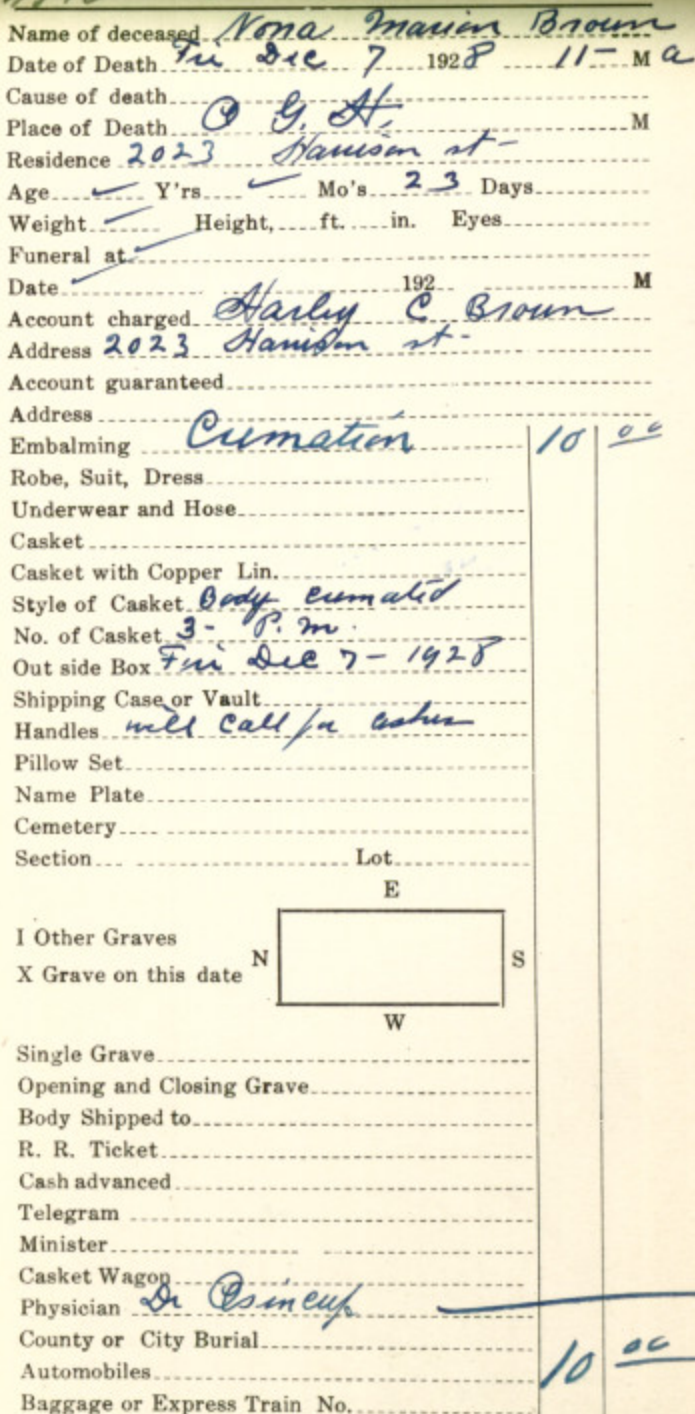 Name of deceased Nona Marion Brown
Date of Death Fri Dec 7 1928 11- M a
Cause of death
Place of Death O G. H. M
Residence 2023 Harrison st-
Age Y'rs Mo's 23 Days
Weight Height, ft. in. Eyes
Funeral at
Date 192 M
Account charged Harley C Brown
Address 2023 Harrison st-
Account guaranteed
Address
Embalming Cremation 10 00
Robe, Suit, Dress
Underwear and Hose
Casket
Casket with Copper Lin.
Style of Casket Body cremated
No. of Casket 3- P.m.
Out side Box Fri Dec 7- 1928
Shipping Case or Vault
Handles will call for ashes
Pillow Set
Name Plate
Cemetery
Section Lot
E
I Other Graves
N S
X Grave on this date
W
Single Grave
Opening and Closing Grave
Body Shipped to
R. R. Ticket
Cash advanced
Telegram
Minister
Casket Wagon
Physician Dr
County or City Burial
Automobiles 10 00
Baggage or Express Train No.